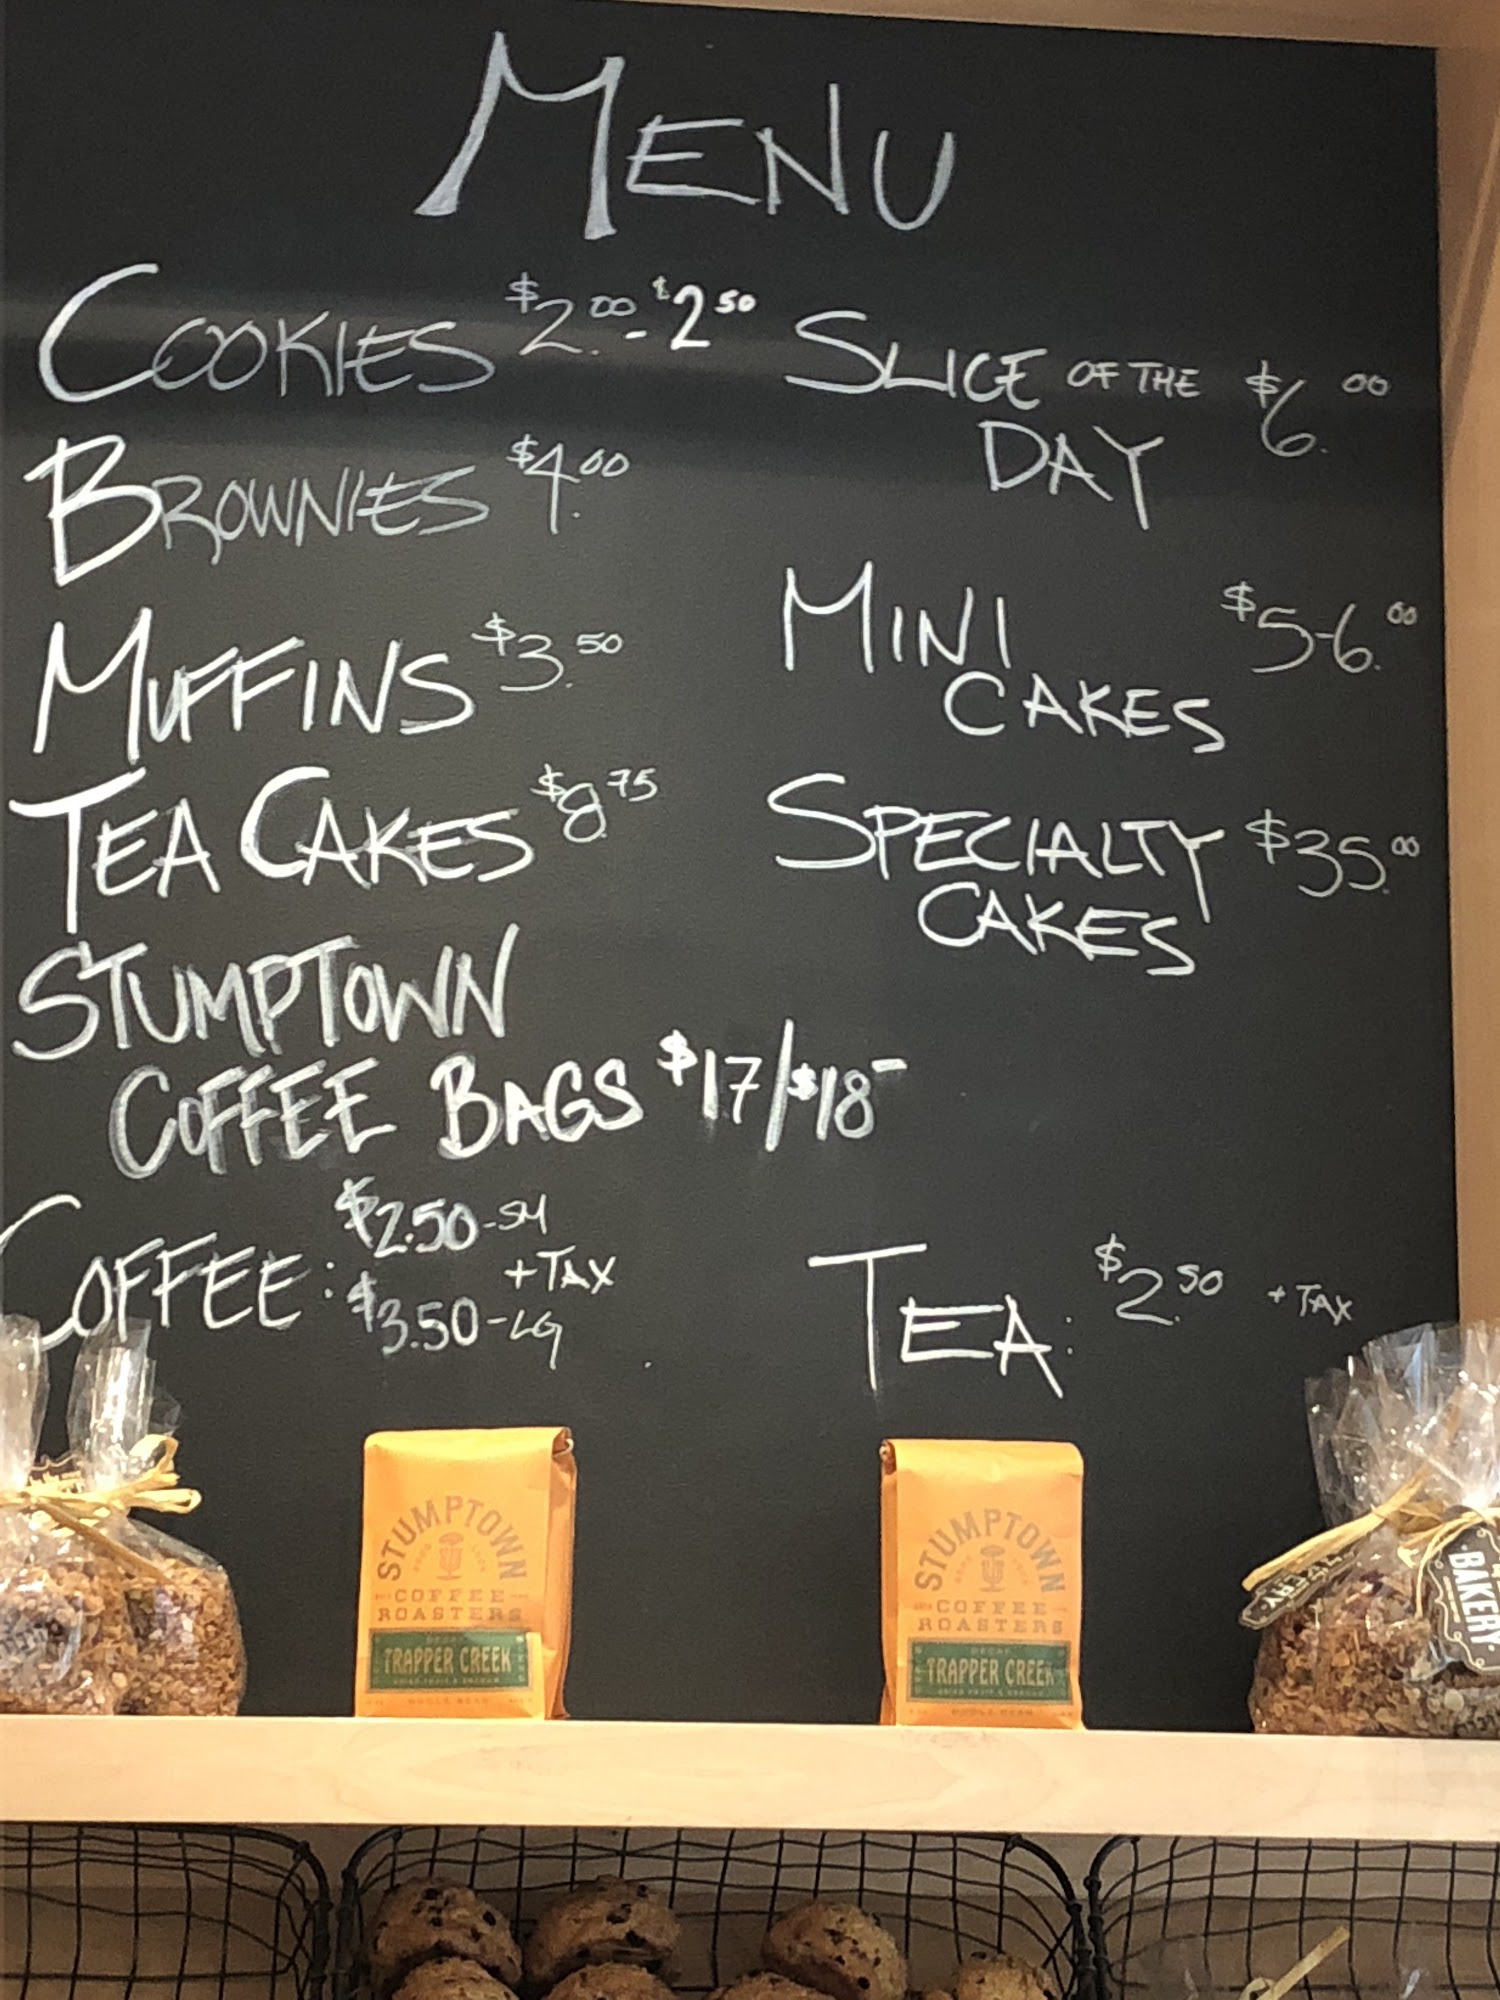 MENU
COOKIES $2.00 - $2.50
BROWNIES $4.00
MUFFINS $3.50
TEA CAKES $8.75
STUMPTOWN
COFFEE BAGS $17/$18-
COFFEE: $2.50-SM
+TAX
$3.50-LG
SLICE OF THE $6.00
DAY
MINI $5-6.00
CAKES
SPECIALTY $35.00
CAKES
TEA: $2.50 +TAX
STUMPTOWN
COFFEE
ROASTERS
DECAF
TRAPPER CREEK
WHOLE BEAN
STUMPTOWN
COFFEE
ROASTERS
DECAF
TRAPPER CREEK
WHOLE BEAN
BAKERY